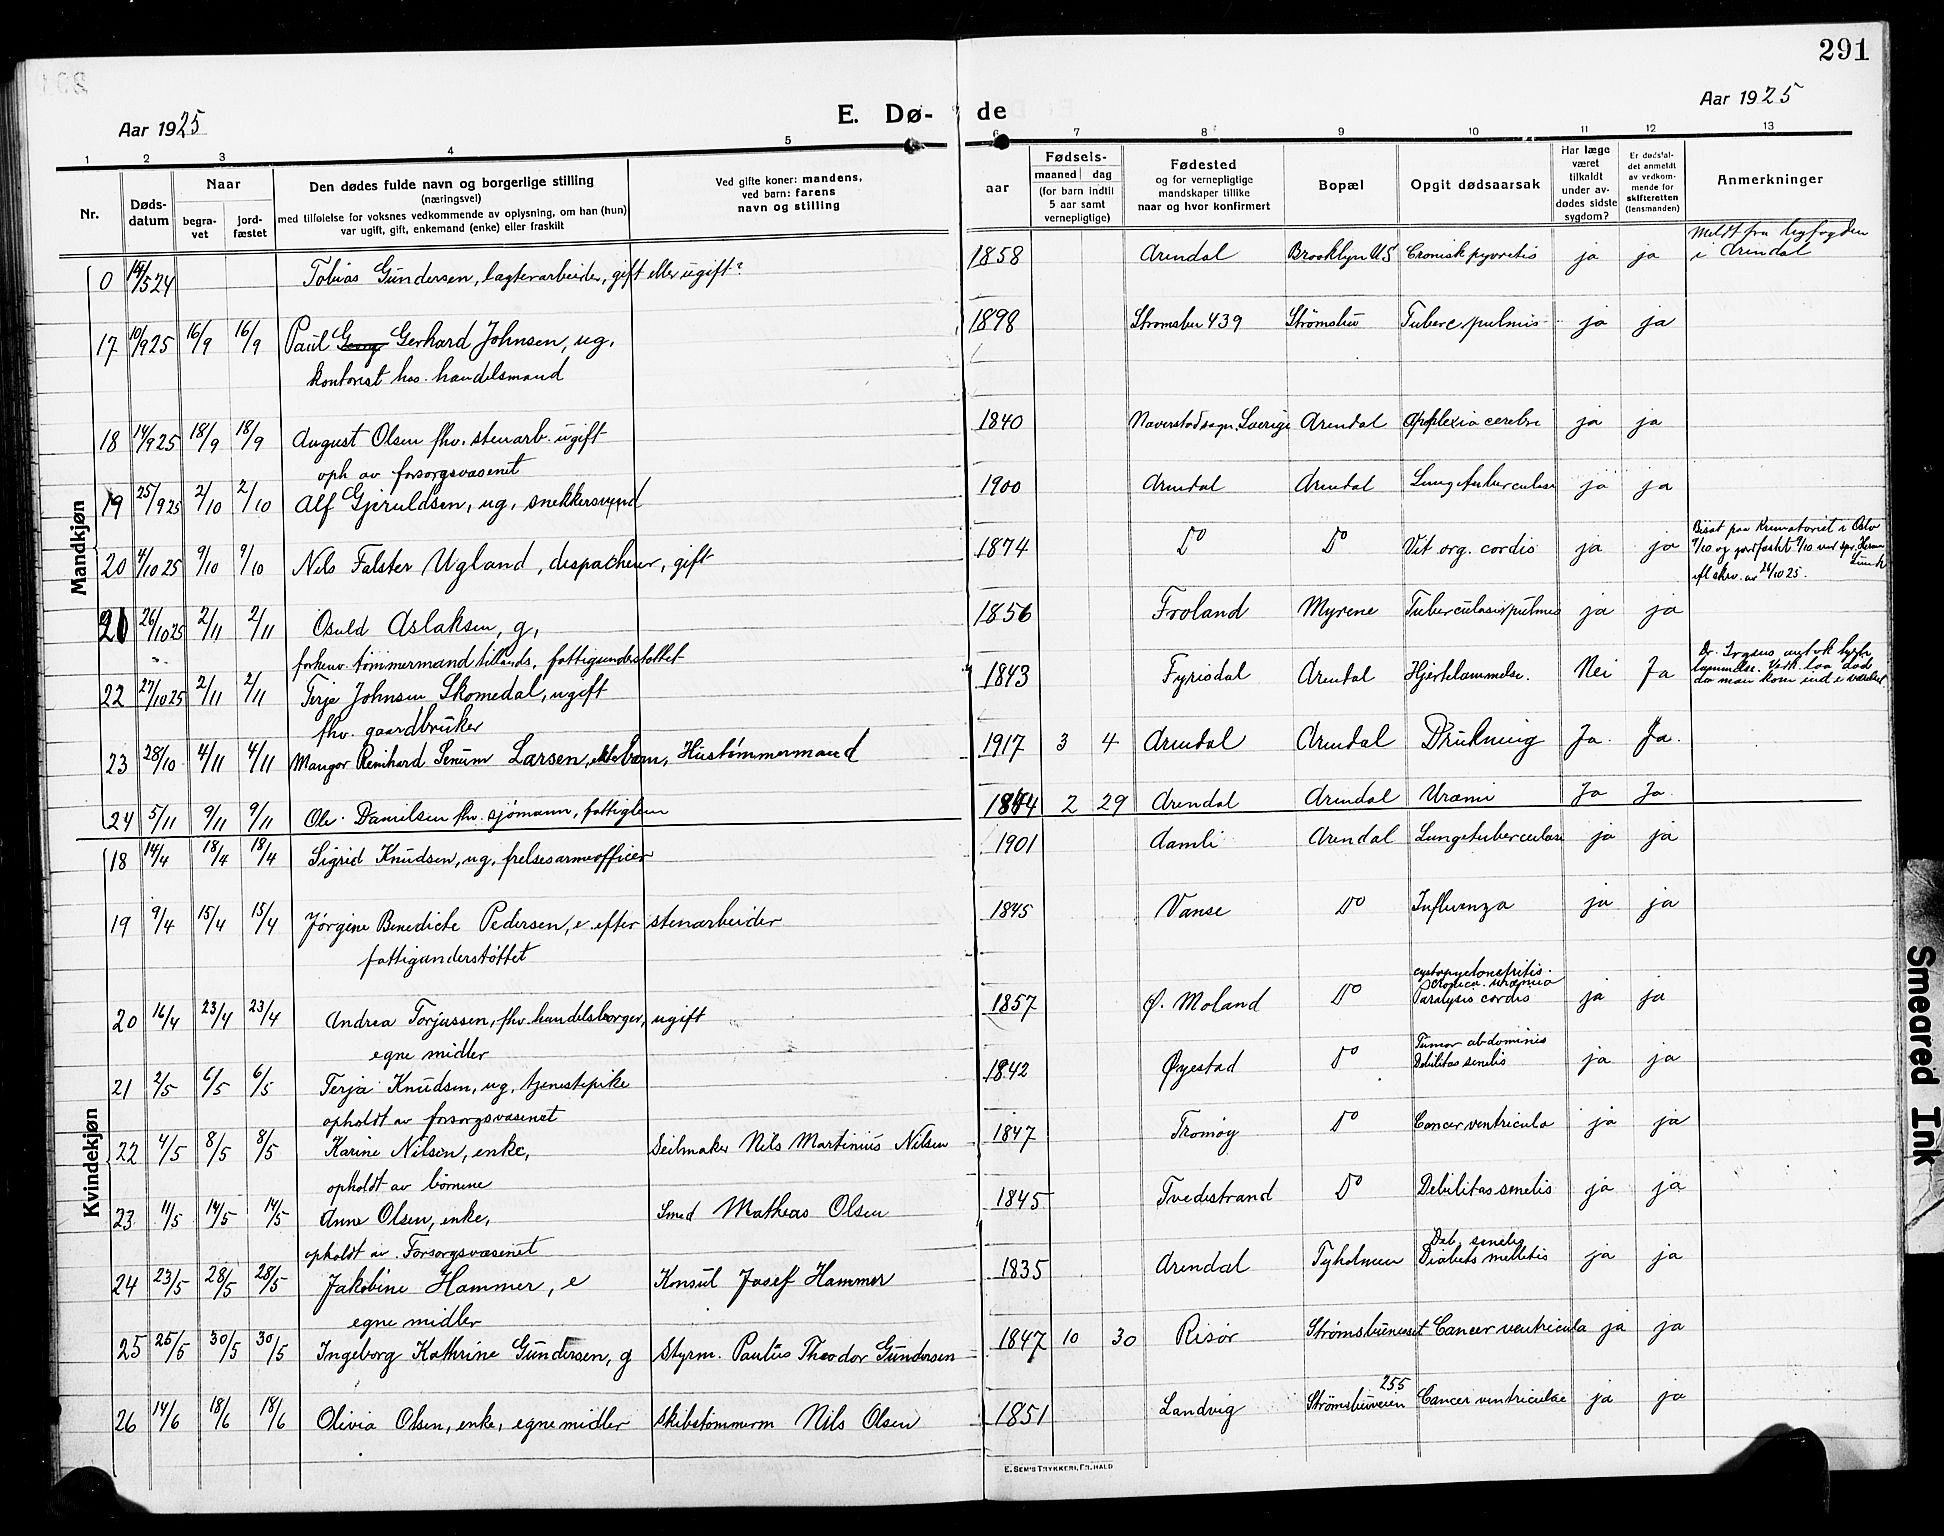 291
Aar 1925
E. Dø-
de
Aar 1925
1 2 3 4 5 6 7 8 9 10 11 12 13
Nr.
Døds-
datum
Naar
begra-
vet
jord-
fæstet
Den dødes fulde navn og borgerlige stilling
(næringsvei)
med tilføielse for voksnes vedkommende av oplysning, om han (hun)
var ugift, gift, enkemand (enke) eller fraskilt
Ved gifte koner: mandens,
ved barn: farens
navn og stilling
aar
Fødsels-
maaned dag
(for barn indtil
5 aar samt
vernepligtige)
Fødested
og for vernepligtige
mandskaper tillike
naar og hvor konfirmert
Bopæl
Opgit dødsaarsak
Har læge
været
tilkaldt
under av-
dødes sidste
sygdom?
Er dødsfal-
det anmeldt
av vedkom-
mende for
skifteretten
(lensmanden)
Anmerkninger
Mandkjøn
0 14/5 24 Tobias Gundersen, lagterarbeider, gift eller ugift? 1858 Arendal Brooklyn U.S Cronisk pyoretis ja ja Meldt fra byfogden
i Arendal
17 10/9 25 16/9 16/9 Paul Georg Gerhard Johnsen, ug, 1898 Strømsbu 439 Strømsbu Tuberc. pulmis ja ja
kontorist hos. handelsmand
18 14/9 25 18/9 18/9 August Olsen fhv. stenarb. ugift 1840 Naverstadsogn. Sverige Arendal Apoplexia cerebri ja ja
oph av forsorgsvæsenet
19 25/9 25 2/10 2/10 Alf Gjeruldsen, ug, snekkersvend 1900 Arendal Arendal Lungetuberculose ja ja
20 4/10 25 9/10 9/10 Nils Falster Ugland, dispacheur, gift 1874 Do Do Vit org. cordis ja ja Bisat paa Krematoriet i Oslo
9/10 og jordfæstet 9/10 ved spr. Herman
Lunde
efl skrv. av 26/10 25.
21 26/10 25 2/11 2/11 Osuld Aslaksen, g, 1856 Froland Myrene Tuberculosis pulmis ja ja
forhenv. tømmermand tillands, fattigunderstøttet
22 27/10 25 2/11 2/11 Terje Johnsen Skomedal, ugift 1843 Fyrisdal Arendal Hjertelammelse. Nei Ja
fhv. gaardbruker
23 28/10 4/11 4/11 Mangor Reinhard Senum Larsen, ekte barn, Hustømmermand 1917 3 4 Arendal Arendal Drukning Ja. Ja.
24 5/11 9/11 9/11 Ole Danielsen fhv. sjømann, fattiglem 1844 2 29 Arendal Arendal Uræmi Ja Ja.
Kvindekjøn
18 14/4 18/4 18/4 Sigrid Knudsen, ug, frelsesarmeofficer 1901 Aamli Arendal Lungetuberculose ja ja
19 9/4 15/4 15/4 Jørgine Benedicte Pedersen, e. efter stenarbeider 1845 Vanse Do Influenza ja ja
fattigunderstøttet
20 16/4 23/4 23/4 Andrea Torjussen, fhv. handelsborger, ugift 1857 Ø. Moland Do Paralysis cordis ja ja
egne midler
21 2/5 6/5 6/5 Terja Knudsen, ug, tjenestepike 1842 Øyestad Do Tumor abdominis
Debilitas senelis ja ja
opholdt av forsorgsvæsenet
22 4/5 8/5 8/5 Karine Nilsen, enke, Seilmaker Nils Martinius Nilsen 1847 Tromøy Do Cancer ventricula ja ja
opholdt av børnene
23 11/5 14/5 14/5 Anne Olsen, enke, Smed Matheas Olsen 1845 Tvedestrand Do Debilitas senelis ja ja
opholdt av Forsorgsvæsenet
24 23/5 28/5 28/5 Jakobine Hammer, e Konsul Josef Hammer 1835 Arendal Tyholmen Deb. senelis
Diabets melletis ja ja
egne midler
25 25/5 30/5 30/5 Ingeborg Kathrine Gundersen, g Styrm. Paulus Theodor Gundersen 1847 10 30 Risør Cancer ventricula ja ja
26 14/6 18/6 18/6 Olivia Olsen, enke, egne midler skibstømmerm Nils Olsen 1851 Landvig Strømsbuveien 255 Cancer ventriculae ja ja
E. SEM'S TRYKKERI, FR.HALD
Smeared Ink